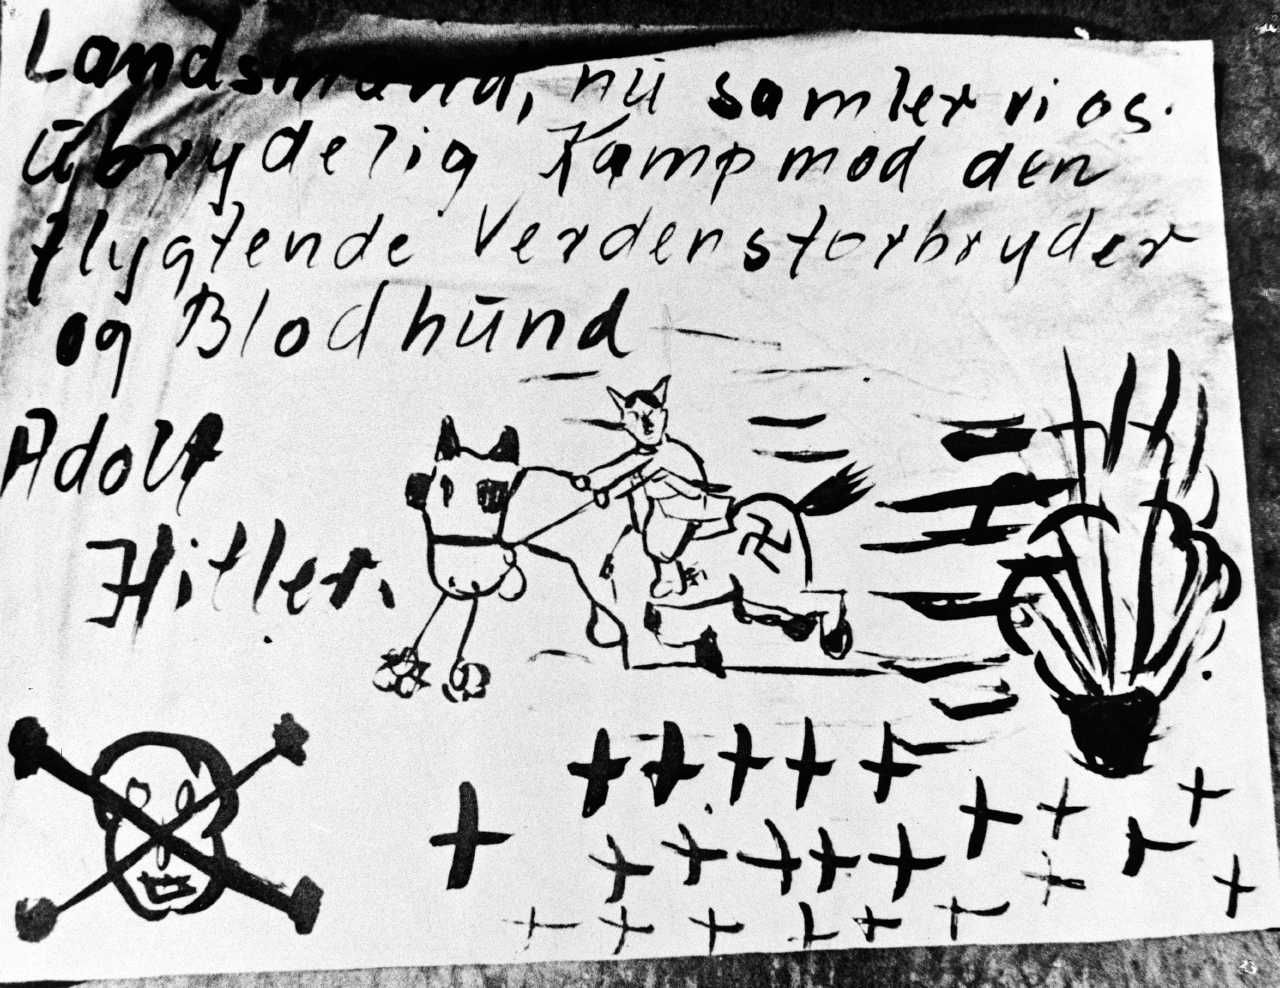 Landsmänd, nū samler vi os.
Ūbrydelig Kamp mod den
flygtende Verdensforbryder
og Blodhūnd
Adolf
Hitler.
23